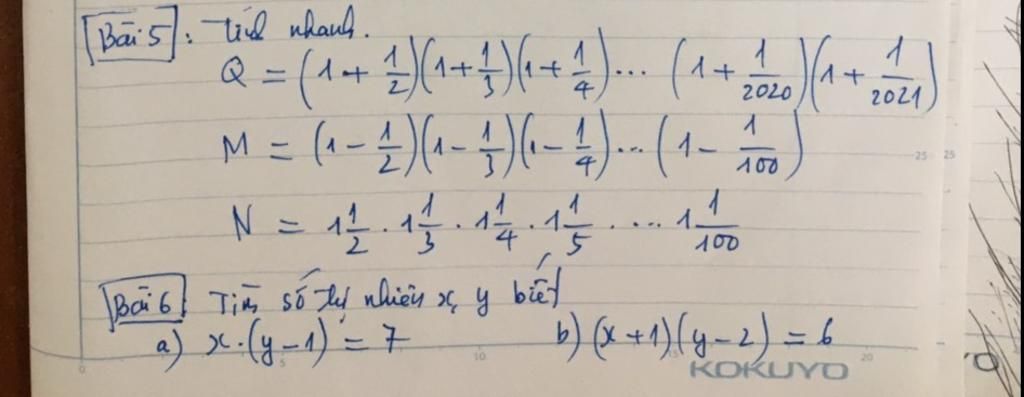 Bài 5: Tính nhanh.
Q = (1 + 1/2)(1 + 1/3)(1 + 1/4)... (1 + 1/2020)(1 + 1/2021)
M = (1 - 1/2)(1 - 1/3)(1 - 1/4)... (1 - 1/100)
25 25
N = 1 1/2 . 1 1/3 . 1 1/4 . 1 1/5 . ... 1 1/100
Bài 6 Tìm số tự nhiên x, y biết
a) x.(y-1) = 7 b) (x+1)(y-2) = 6
0 5 10 15 20
KOKUYO